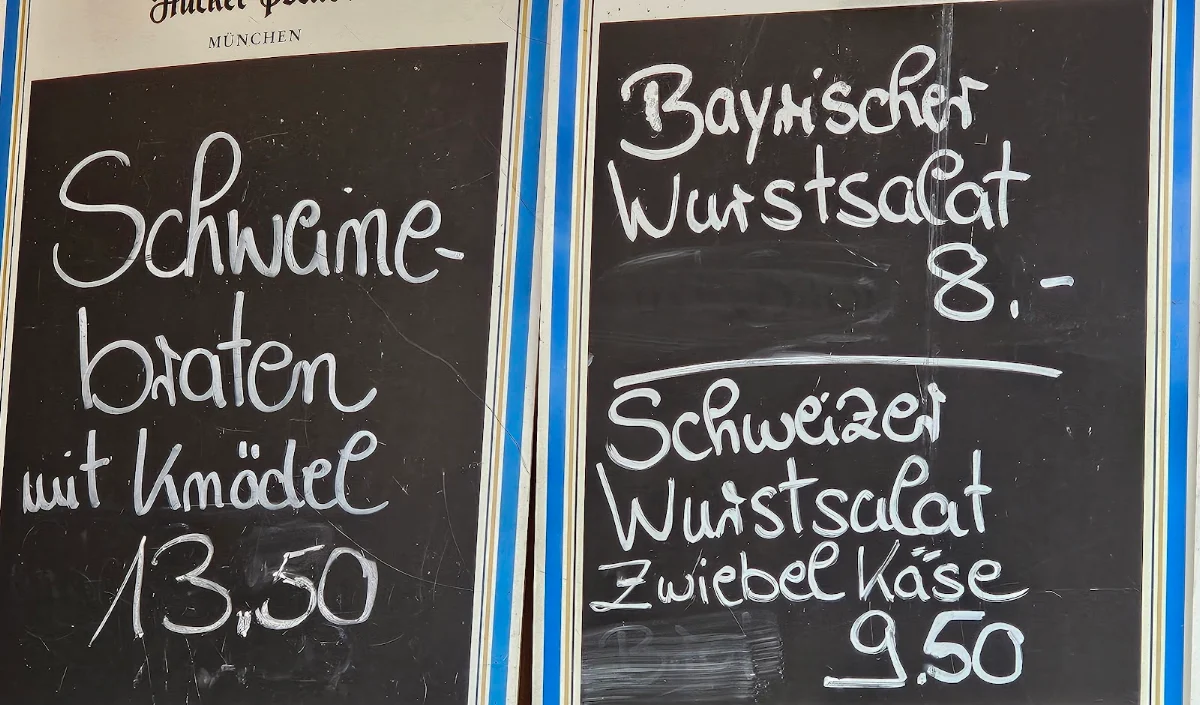 MÜNCHEN
Schweine-
braten
mit Knödel
13.50
Bayrischer
Wurstsalat
8.-
Schweizer
Wurstsalat
Zwiebel Käse
9.50